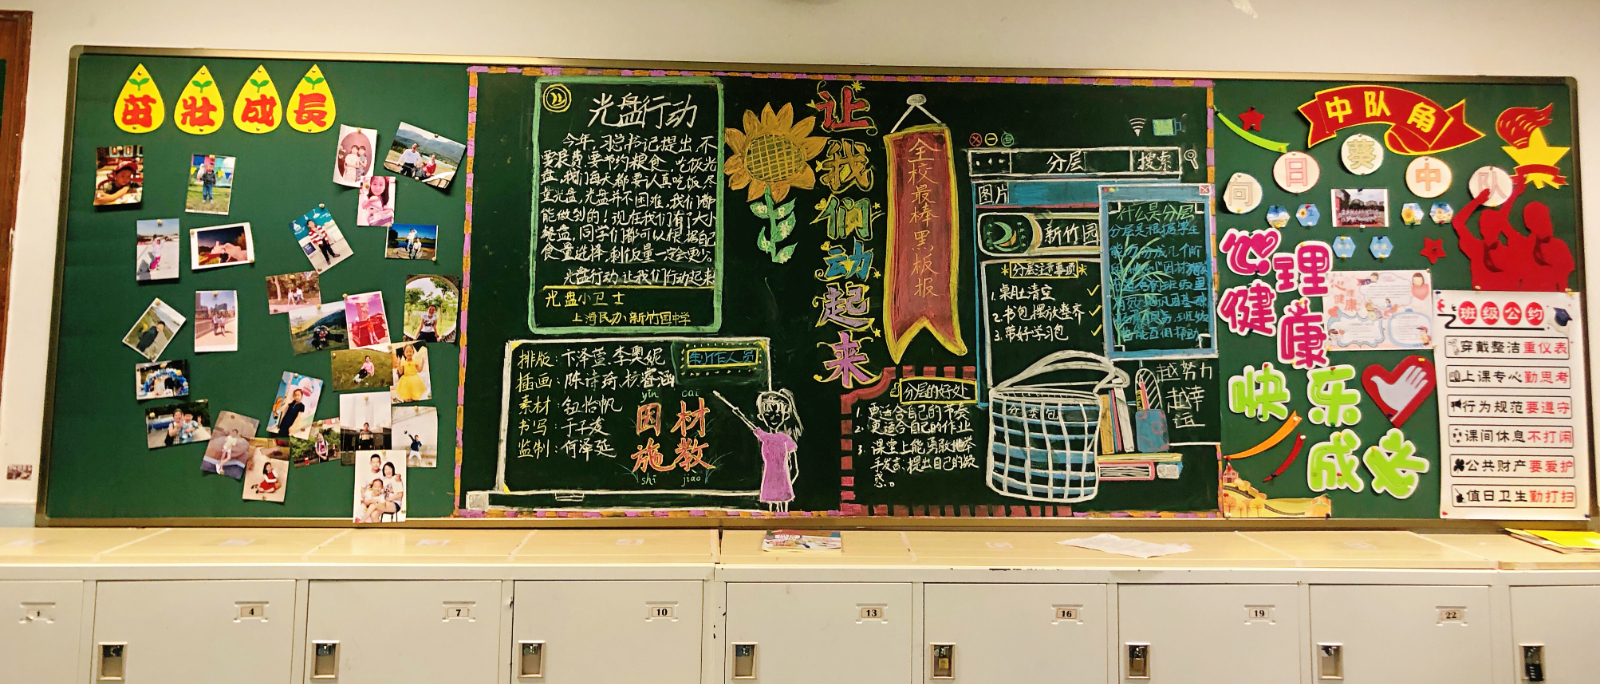 茁壮成长
光盘行动
今年,习总书记提出,不
要浪费,要节约粮食,吃饭光
盘,我们每天都要认真吃饭,尽
量光盘,光盘并不困难,我们都
能做到的!现在我们有了大小
餐盘,同学们都可以根据自己
食量选择,剩饭量一定会更少
光盘行动,让我们行动起来
光盘小卫士
上海民办新竹园中学
制作人员
排版:卞泽萱,李奥妮
插画:陈诗琦
素材:钮怡帆
书写:于子凌
监制:何泽延
yīn cái
因材
施教
shī jiào
让我们动起来
全校最棒黑板报
分层 搜索
图片
新竹园
分层注意事项
1.桌肚清空
2.书包摆放整齐
3.带好学习包
什么是分层
分层是根据学生
分层的好处
1.更适合自己的节奏
2.更适合自己的作业
3.课堂上能勇敢地举
手发言,提出自己的疑
惑。
分类包
越努力
越幸
运
中队角
向日葵中队
心理
健康
快乐
成长
班级公约
穿戴整洁重仪表
上课专心勤思考
行为规范要遵守
课间休息不打闹
公共财产要爱护
值日卫生勤打扫
4
7
10
13
16
19
22